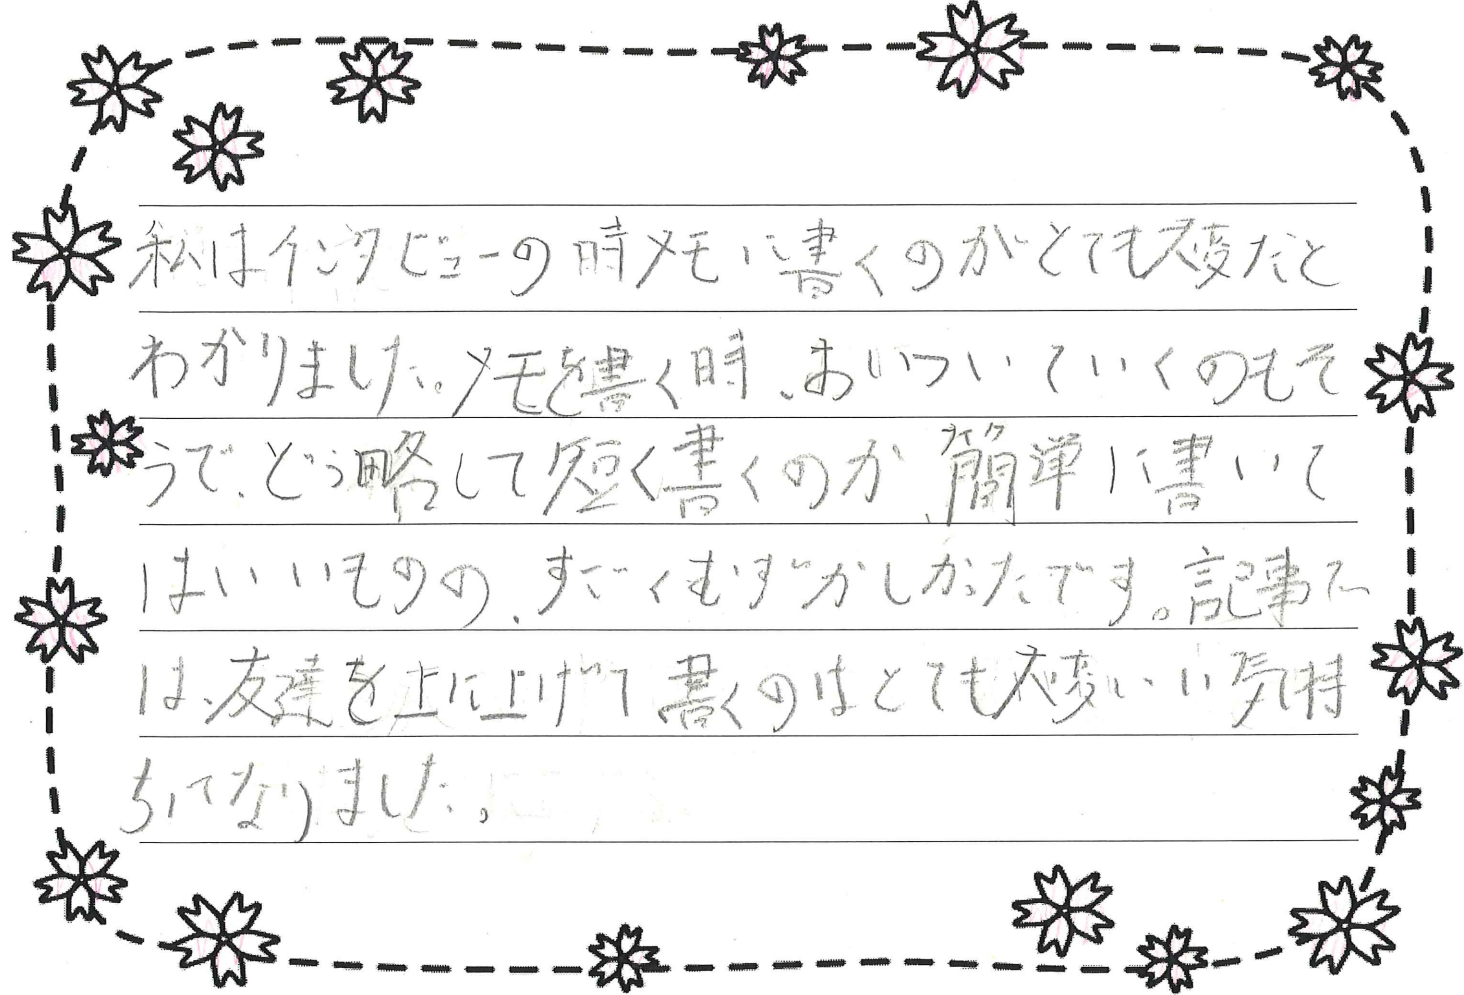 私はインタビューの時メモに書くのがとても大変だと
わかりました。メモを書く時、おいついていくのもそ
うで、どう略して短く書くのか、簡単に書いて
はいいものの、すごくむずかしかったです。記事に
は、友達を上に上げて書くのはとても大変いい気持
ちになりました。